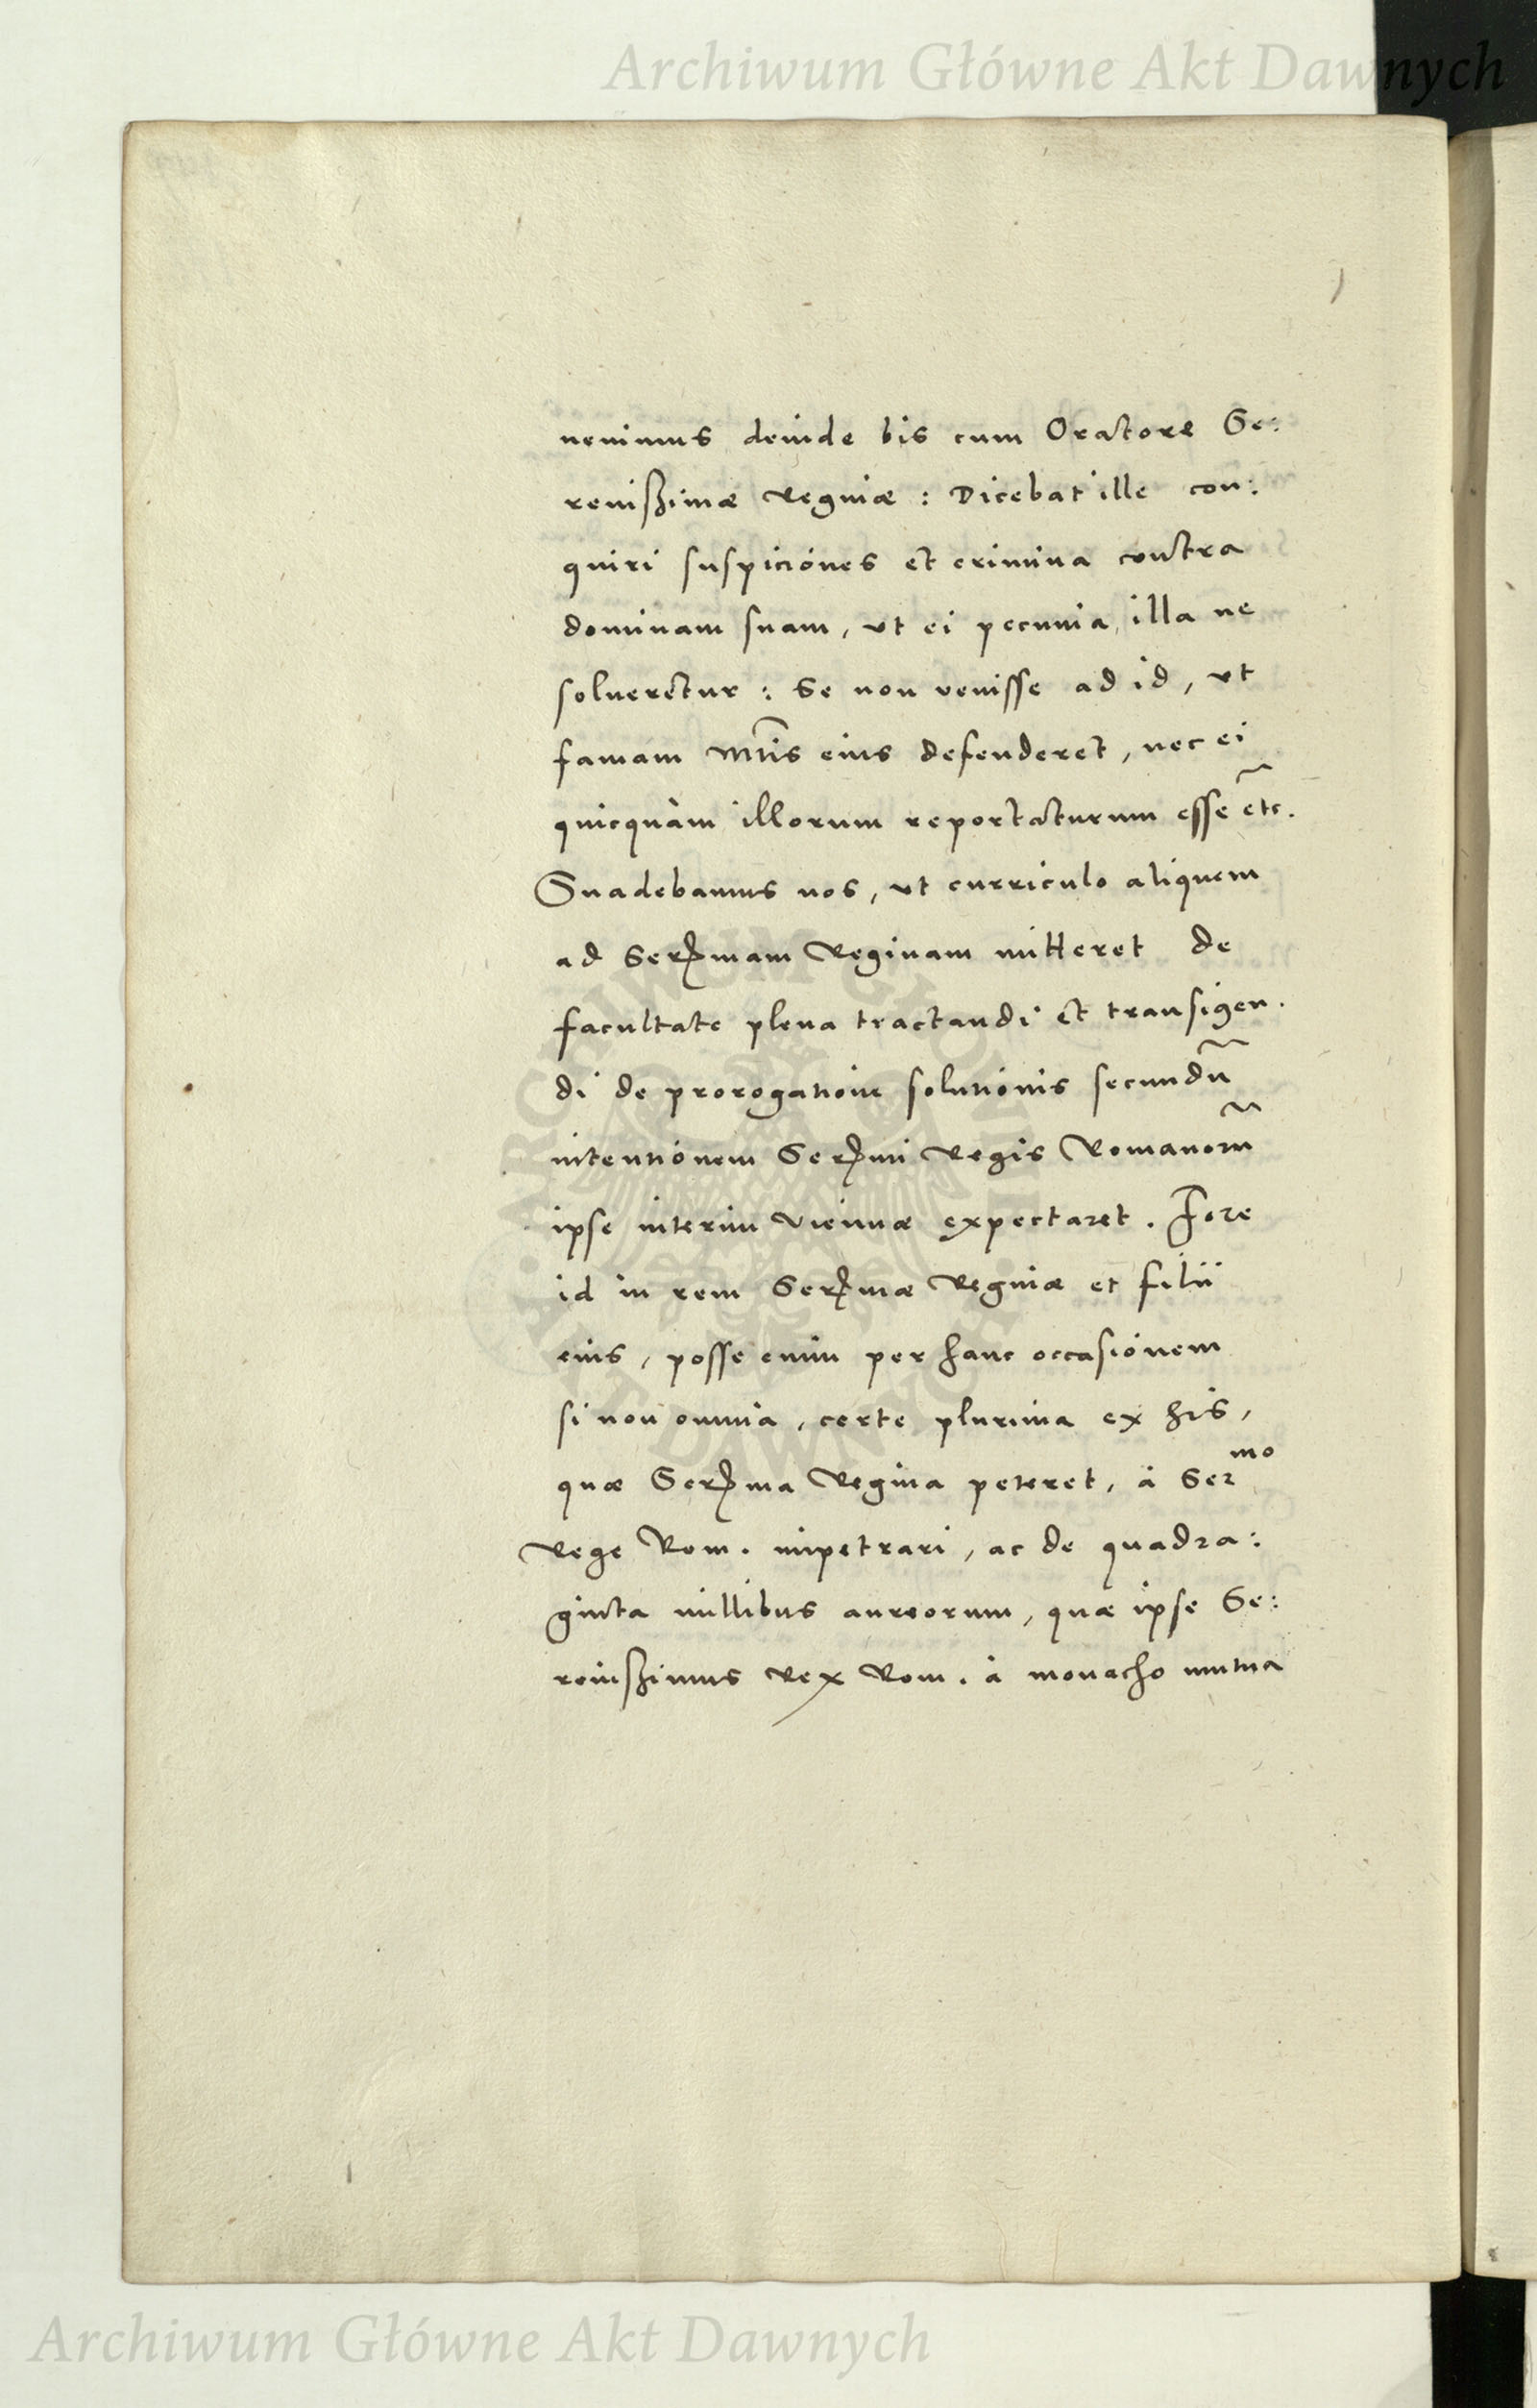 Archiwum Główne Akt Dawnych
uenimus deinde bis cum Oratore Se:
renißimæ Reginæ : Dicebat ille con:
quiri suspiciónes et crimina contra
dominam suam, vt ei pecunia illa ne
solueretur : Se non venisse ad id, vt
famam Mtis eius defenderet, nec ei
quicquàm illorum reportaturum esse etc.
Suadebamus nos, vt curriculo aliquem
ad Sermam Reginam mitteret de
facultate plena tractandi et transigen.
di de prorogatione solutiónis secundū
intentiónem Sermi Regis Romanorū
ipse interim Viennæ expectaret. Fore
id in rem Sermæ Reginæ et filii
eius, posse enim per hanc occasiónem
si non omnia, certe plurima ex his,
quæ Serma Regina peteret, à Sermo
Rege Rom. impetrari, ac de quadra:
ginta millibus aureorum, quæ ipse Se:
renißimus Rex Rom. à monacho mutua
ARCHIWUM GŁÓWNE AKT DAWNYCH
Archiwum Główne Akt Dawnych